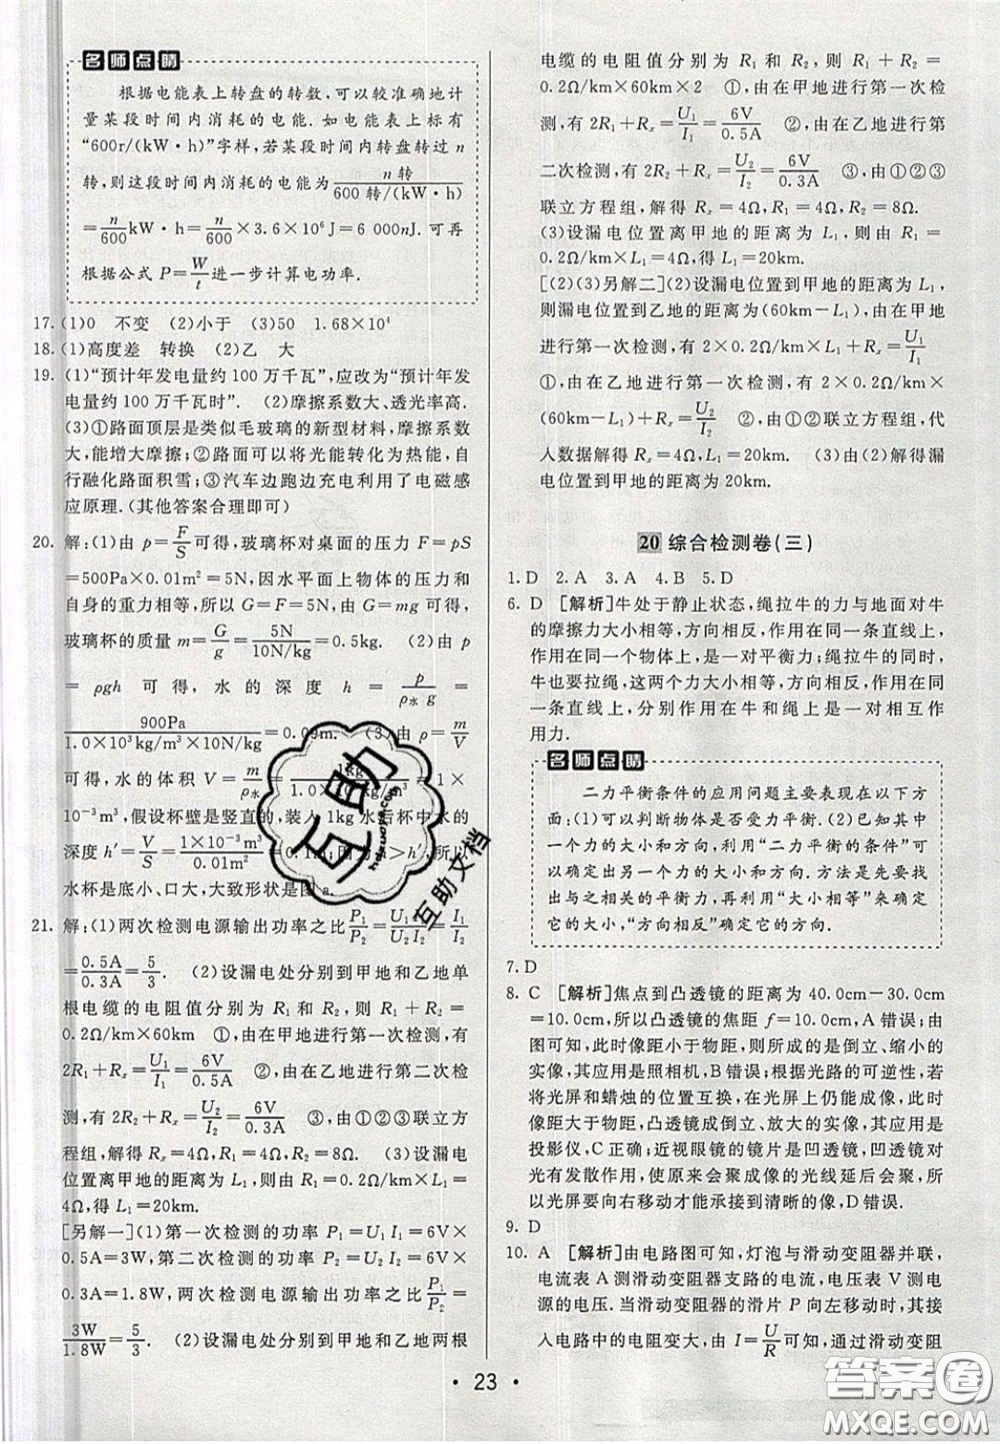 名师点睛
根据电能表上转盘的转数,可以较准确地计
量某段时间内消耗的电能.如电能表上标有
“600r/(kW·h)”字样,若某段时间内转盘转过 n
转,则这段时间内消耗的电能为 n转/600转/(kW·h)
=n/600 kW·h=n/600×3.6×10⁶J=6000nJ.可再
根据公式 P=W/t 进一步计算电功率.
17.(1)0 不变 (2)小于 (3)50 1.68×10⁴
18.(1)高度差 转换 (2)乙 大
19.(1)“预计年发电量约100万千瓦”,应改为“预计年发
电量约100万千瓦时”. (2)摩擦系数大、透光率高.
(3)①路面顶层是类似毛玻璃的新型材料,摩擦系数
大,能增大摩擦;②路面可以将光能转化为热能,自
行融化路面积雪;③汽车边跑边充电利用了电磁感
应原理.(其他答案合理即可)
20.解:(1)由 p=F/S 可得,玻璃杯对桌面的压力 F=pS
=500Pa×0.01m²=5N,因水平面上物体的压力和
自身的重力相等,所以 G=F=5N,由 G=mg 可得,
玻璃杯的质量 m=G/g=5N/10N/kg=0.5kg. (2)由 p
=ρgh 可得,水的深度 h=p/ρ水g=
900Pa/1.0×10³kg/m³×10N/kg=0.09m. (3)由 ρ=m/V
可得,水的体积 V=m/ρ水=1kg/1.0×10³kg/m³=1×
10⁻³m³,假设杯壁是竖直的,装入1kg水后杯中水的
深度 h′=V/S=1×10⁻³m³/0.01m²=0.1m;因为h>h′,所以
水杯是底小、口大,大致形状是图a.
21.解:(1)两次检测电源输出功率之比 P₁/P₂=U₁I₁/U₂I₂=I₁/I₂
=0.5A/0.3A=5/3. (2)设漏电处分别到甲地和乙地单
根电缆的电阻值分别为 R₁ 和 R₂,则 R₁+R₂=
0.2Ω/km×60km ①,由在甲地进行第一次检测,有
2R₁+Rₓ=U₁/I₁=6V/0.5A ②,由在乙地进行第二次检
测,有 2R₂+Rₓ=U₂/I₂=6V/0.3A ③,由①②③联立方
程组,解得 Rₓ=4Ω,R₁=4Ω,R₂=8Ω. (3)设漏电
位置离甲地的距离为 L₁,则 0.2Ω/km×L₁=
4Ω,得 L₁=20km.
[另解一](1)第一次检测的功率 P₁=U₁I₁=6V×
0.5A=3W,第二次检测的功率 P₂=U₂I₂=6V×
0.3A=1.8W,两次检测电源输出功率之比 P₁/P₂=
3W/1.8W=5/3. (2)设漏电处分别到甲地和乙地两根
电缆的电阻值分别为 R₁ 和 R₂,则 R₁+R₂=
0.2Ω/km×60km×2 ①,由在甲地进行第一次检
测,有 2R₁+Rₓ=U₁/I₁=6V/0.5A ②,由在乙地进行第
二次检测,有 2R₂+Rₓ=U₂/I₂=6V/0.3A ③,由①②③
联立方程组,解得 Rₓ=4Ω,R₁=4Ω,R₂=8Ω.
(3)设漏电位置离甲地的距离为 L₁,则
0.2Ω/km×L₁=4Ω,得 L₁=20km.
[(2)(3)另解二](2)设漏电位置到甲地的距离为 L₁,
则漏电位置到乙地的距离为(60km−L₁),由在甲地
进行第一次检测,有 2×0.2Ω/km×L₁+Rₓ=U₁/I₁
①,由在乙地进行第二次检测,有 2×0.2Ω/km×
(60km−L₁)+Rₓ=U₂/I₂ ②,由①②联立方程组,代
人数据解得 Rₓ=4Ω. (3)由(2)解得漏
电位置到甲地的距离为20km.
20 综合检测卷(三)
1. D 2. A 3. A 4. B 5. D
6. D [解析]牛处于静止状态,绳拉牛的力与地面对牛
的摩擦力大小相等,方向相反,作用在同一条直线上,
作用在同一个物体上,是一对平衡力;绳拉牛的同时,
牛也要拉绳,这两个力大小相等,方向相反,作用在同
一条直线上,分别作用在牛和绳上是一对相互作
用力.
名师点睛
二力平衡条件的应用问题主要表现在以下方
面:(1)可以判断物体是否受力平衡.(2)已知其中
一个力的大小和方向,利用“二力平衡的条件”可以
求出另一个力的大小和方向.方法是先要确定出
与之相关的平衡力,再利用“大小相等”来确定
它的大小,“方向相反”确定它的方向.
7. D
8. C [解析]焦点到凸透镜的距离为40.0cm−30.0cm
=10.0cm,所以凸透镜的焦距 f=10.0cm,A错误;由
图可知,此时像距小于物距,则所成的是倒立、缩小的
实像,其应用是照相机,B错误;根据光路的可逆性,若
将光屏和蜡烛的位置互换,在光屏上仍能成像,此时像
距大于物距,像是倒立、放大的实像,其应用是
投影仪,C正确;近视眼镜的镜片是凹透镜,凹透镜对
光有发散作用,使原来会聚成像的光线延后会聚,所
以光屏要向右移动才能承接到清晰的像,D错误.
9. D
10. A [解析]由电路图可知,灯泡与滑动变阻器并联,
电流表A测滑动变阻器支路的电流,电压表V测电
源的电压.当滑动变阻器的滑片 P 向左移动时,其接
入电路中的电阻变大,由 I=U/R 可知,通过滑动变阻
• 23 •
互助
hdzuoye.com
互助文档
答案圈
MXQE.COM